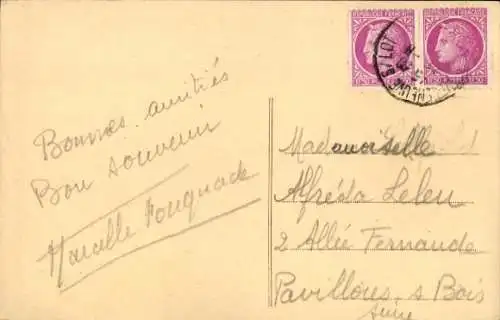 Bonnes amitiés
Bon souvenir
Marcelle Fouquade
Mademoiselle
Alfréda Leleu
2 Allée Fernande
Pavillons s Bois
Seine
S/LOT